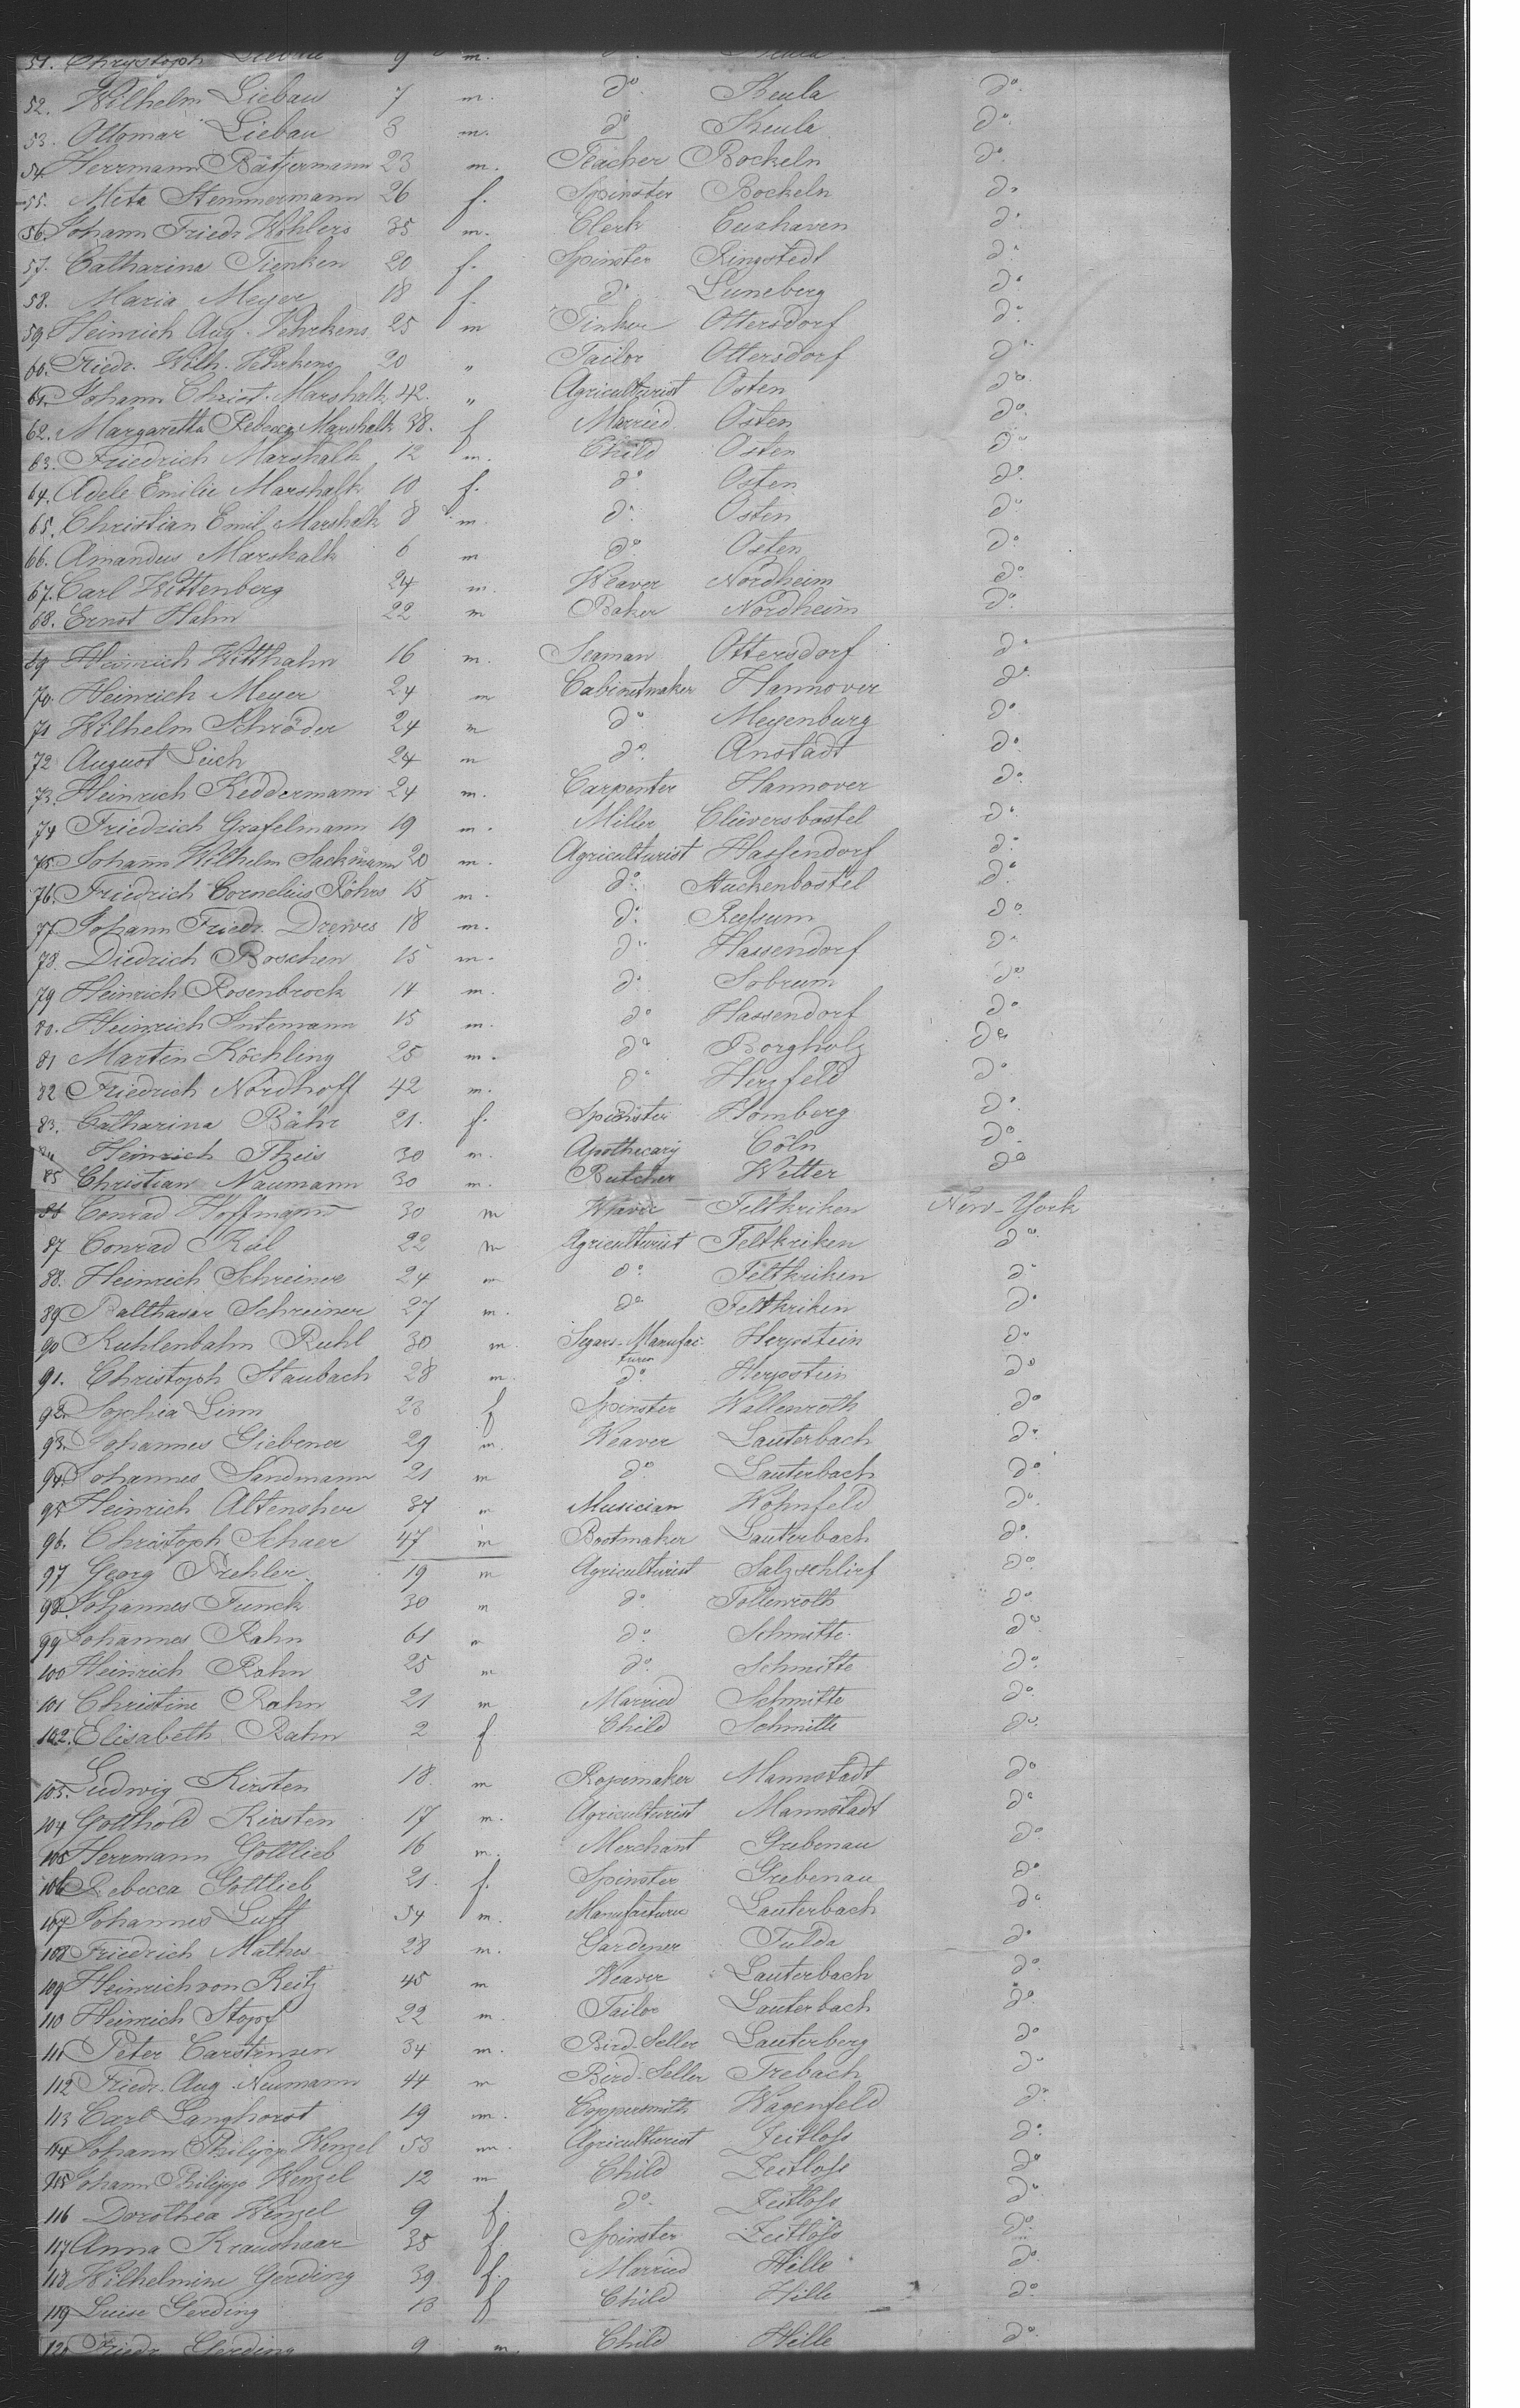 51. Chrystoph Liebau 9 m. do. Keula
52. Wilhelm Liebau 7 m. do. Keula do.
53. Ottomar Liebau 3 m. do. Keula do.
54 Herrmann Bätjermann 23 m. Teacher Bockeln do.
55. Meta Stemmermann 26 f. Spinster Bockeln do.
56. Johann Friedr. Wohlers 35 m. Clerk Cuxhaven do.
57. Catharina Tienken 20 f. Spinster Ringstedt do.
58. Maria Meyer 18 f. do. Luneberg do.
59 Heinrich Aug. Wehrkens 25 m Tinker Ottersdorf do.
60. Friedr. Wilh. Wehrkens 20 " Tailor Ottersdorf do.
61. Johann Christ. Marshalk 42. " Agriculturist Osten do.
62. Margaretta Rebecca Marshalk 38. f Married Osten do.
63. Friedrich Marshalk 12 m. Child Osten do.
64. Adele Emilie Marshalk 10 f. do. Osten do.
65. Christian Emil Marshalk 8 m. do. Osten do.
66. Amandus Marshalk 6 m do. Osten do.
67. Carl Wittenberg 24 m. Weaver Nordheim do.
68. Ernst Hahn 22 m Baker Nordheim do.
69 Heinrich Witthahn 16 m. Seaman Ottersdorf do.
70. Heinrich Meyer 24 m Cabinetmaker Hannover do.
71 Wilhelm Schröder 24 m do. Meyenburg do.
72 August Leich 24 m do. Anstadt do.
73. Heinrich Keddermann 24 m. Carpenter Hannover do.
74 Friedrich Grafelmann 19 m. Miller Clüversbostel do.
75. Johann Wilhelm Sackmann 20 m. Agriculturist Hassendorf do.
76. Friedrich Cornelius Röhrs 15 m. do. Stuckenbostel do.
77 Johann Friedr. Drewes 18 m. do. Reessum do.
78. Diedrich Boschen 15 m. do. Hassendorf do.
79 Heinrich Rosenbrock 14 m. do. Sobrum do.
80. Heinrich Intemann 15 m. do Hassendorf do
81 Martin Köchling 25 m. do Borgholz do
82 Friedrich Nordhoff 42 m. do Herzfeld do.
83. Catharina Bähr 21. f. Spinster Homberg do.
84 Heinrich Theis 30 m. Apothecary Cöln do.
85 Christian Naumann 30 m. Butcher Wetter do
86 Conrad Hoffmann 30 m Weaver Feltkriken New-York
87 Conrad Kül 22 m Agriculturist Feltkriken do.
88. Heinrich Schreiner 24 m do. Feltkriken do
89 Balthasar Schreiner 27 m. do. Feltkriken do.
90 Kuhlenbahn Ruhl 30 m. Segars-Manufac- Herpstein do
turer
91. Christoph Staubach 28 m. do. Herpstein do
92. Sophia Linn 23 f Spinster Wallenroth do
93. Johannes Giebener 29 m. Weaver Lauterbach do.
94. Johannes Sandmann 21 m do. Lauterbach do.
95 Heinrich Altensher 37 m Musician Wohnfeld do.
96. Christoph Schaer 47 m Bootmaker Lauterbach do.
97 Georg Prehler 19 m Agriculturist Salzschlirf do.
98. Johannes Funck 30 m do. Follenroth do.
99 Johannes Rahn 61 m do. Schmitte do.
100 Heinrich Rahn 25 m do. Schmitte do.
101 Christine Rahn 21 m Married Schmitte do.
102. Elisabeth Rahn 2 f Child Schmitte do.
103. Ludwig Kirsten 18. m Ropemaker Mannstadt do
104 Gotthold Kirsten 17 m. Agriculturist Mannstadt do
105 Herrmann Gottlieb 16 m. Merchant Grebenau do
106 Rebecca Gottlieb 21. f. Spinster Grebenau do.
107 Johannes Luft 54 m. Manufacturer Lauterbach do
108 Friedrich Mathes 28 m. Gardener Fulda do.
109 Heinrich von Reitz 45 m Weaver Lauterbach do.
110 Heinrich Stopf 22 m. Tailor Lauterbach do.
111 Peter Carstensen 34 m. Bird-Seller Lauterberg do
112 Friedr. Aug. Neumann 44 m Bird-Seller Trebach do
113 Carl Langhorst 19 m. Coppersmith Wagenfeld do.
114 Johann Philipp Wenzel 53 m. Agriculturist Zeitloss do.
115 Johann Philipp Wenzel 12 m Child Zeitloss do
116 Dorothea Wenzel 9 f. do. Zeitloss do.
117 Anna Kraushaar 35 f. Spinster Zeitloss do.
118 Wilhelmine Gerding 39. f. Married Hille do.
119 Luise Gerding 13 f Child Hille do.
120 Friedr. Gerding 9 m. Child Hille do.